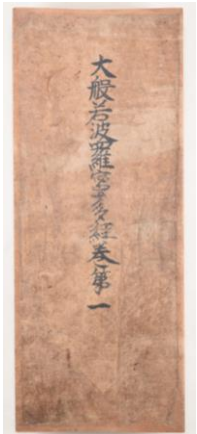 大般若波羅蜜多経巻第一